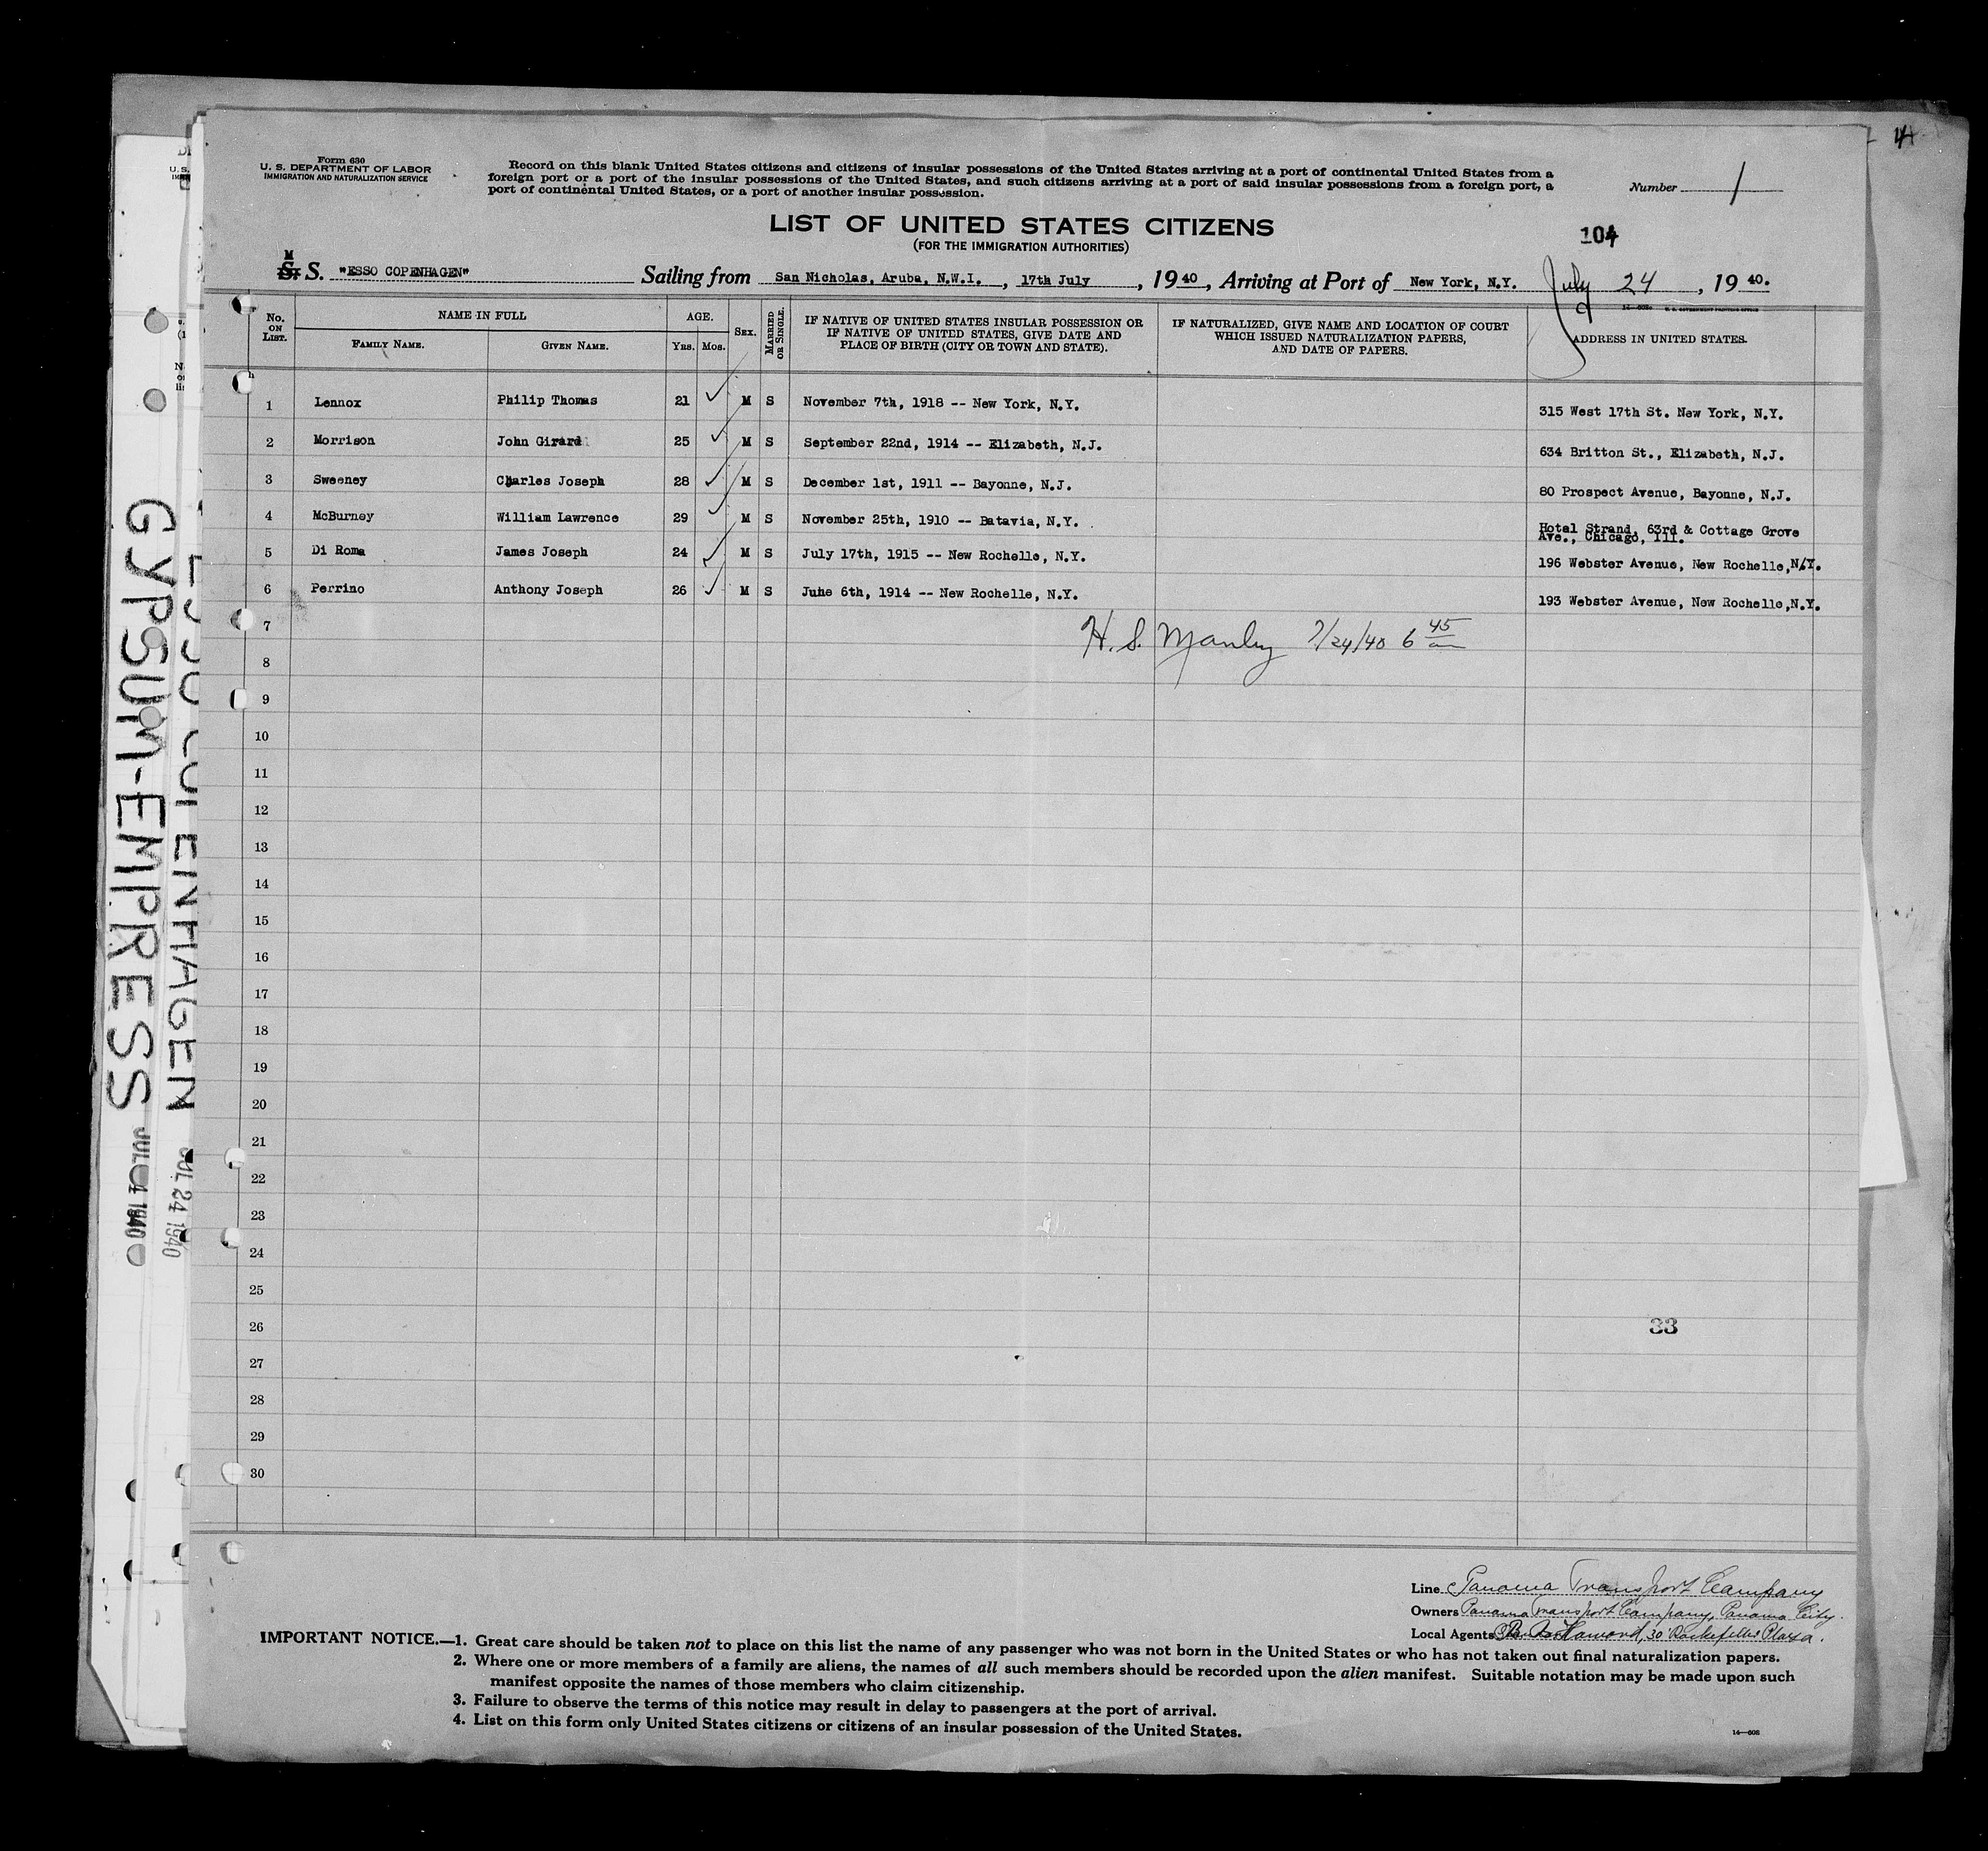 4
Form 630
U. S. DEPARTMENT OF LABOR
IMMIGRATION AND NATURALIZATION SERVICE
Record on this blank United States citizens and citizens of insular possessions of the United States arriving at a port of continental United States from a
foreign port or a port of the insular possessions of the United States, and such citizens arriving at a port of said insular possessions from a foreign port, a
port of continental United States, or a port of another insular possession.
Number 1
LIST OF UNITED STATES CITIZENS
(FOR THE IMMIGRATION AUTHORITIES)
104
M
S. S. "ESSO COPENHAGEN" Sailing from San Nicholas, Aruba, N.W.I., 17th July, 1940, Arriving at Port of New York, N.Y. July 24, 1940.
No. ON LIST. NAME IN FULL FAMILY NAME. GIVEN NAME. AGE. YRS. MOS. SEX. MARRIED OR SINGLE. IF NATIVE OF UNITED STATES INSULAR POSSESSION OR IF NATIVE OF UNITED STATES, GIVE DATE AND PLACE OF BIRTH (CITY OR TOWN AND STATE). IF NATURALIZED, GIVE NAME AND LOCATION OF COURT WHICH ISSUED NATURALIZATION PAPERS, AND DATE OF PAPERS. ADDRESS IN UNITED STATES.
1 Lennox Philip Thomas 21 M S November 7th, 1918 -- New York, N.Y. 315 West 17th St. New York, N.Y.
2 Morrison John Girard 25 M S September 22nd, 1914 -- Elizabeth, N.J. 634 Britton St., Elizabeth, N.J.
3 Sweeney Charles Joseph 28 M S December 1st, 1911 -- Bayonne, N.J. 80 Prospect Avenue, Bayonne, N.J.
4 McBurney William Lawrence 29 M S November 25th, 1910 -- Batavia, N.Y. Hotel Strand, 63rd & Cottage Grove
Ave., Chicago, Ill.
5 Di Roma James Joseph 24 M S July 17th, 1915 -- New Rochelle, N.Y. 196 Webster Avenue, New Rochelle, N.Y.
6 Perrino Anthony Joseph 26 M S June 6th, 1914 -- New Rochelle, N.Y. 193 Webster Avenue, New Rochelle, N.Y.
7 H. S. Manley 7/24/40 6 45 am
8
9
10
11
12
13
14
15
16
17
18
19
20
21
22
23
24
25
26 33
27
28
29
30
Line Panama Transport Company
Owners Panama Transport Company, Panama City.
Local Agents 30 Rockefeller Plaza.
IMPORTANT NOTICE.—1. Great care should be taken not to place on this list the name of any passenger who was not born in the United States or who has not taken out final naturalization papers.
2. Where one or more members of a family are aliens, the names of all such members should be recorded upon the alien manifest. Suitable notation may be made upon such
manifest opposite the names of those members who claim citizenship.
3. Failure to observe the terms of this notice may result in delay to passengers at the port of arrival.
4. List on this form only United States citizens or citizens of an insular possession of the United States.
14—608
GYPSUM-EMPRESS
ESSO COPENHAGEN JUL 24 1940